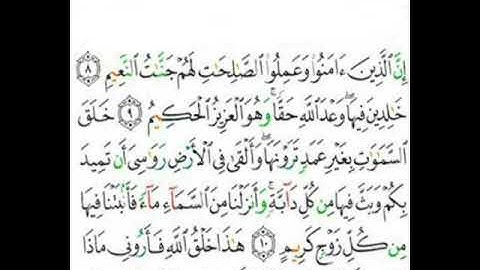 إِنَّ ٱلَّذِينَ ءَامَنُوا۟ وَعَمِلُوا۟ ٱلصَّٰلِحَٰتِ لَهُمْ جَنَّٰتُ ٱلنَّعِيمِ ٨
خَٰلِدِينَ فِيهَا ۖ وَعْدَ ٱللَّهِ حَقًّا ۚ وَهُوَ ٱلْعَزِيزُ ٱلْحَكِيمُ ٩ خَلَقَ
ٱلسَّمَٰوَٰتِ بِغَيْرِ عَمَدٍ تَرَوْنَهَا ۖ وَأَلْقَىٰ فِى ٱلْأَرْضِ رَوَٰسِىَ أَن تَمِيدَ
بِكُمْ وَبَثَّ فِيهَا مِن كُلِّ دَآبَّةٍ ۚ وَأَنزَلْنَا مِنَ ٱلسَّمَآءِ مَآءً فَأَنۢبَتْنَا فِيهَا
مِن كُلِّ زَوْجٍ كَرِيمٍ ١٠ هَٰذَا خَلْقُ ٱللَّهِ فَأَرُونِى مَاذَا